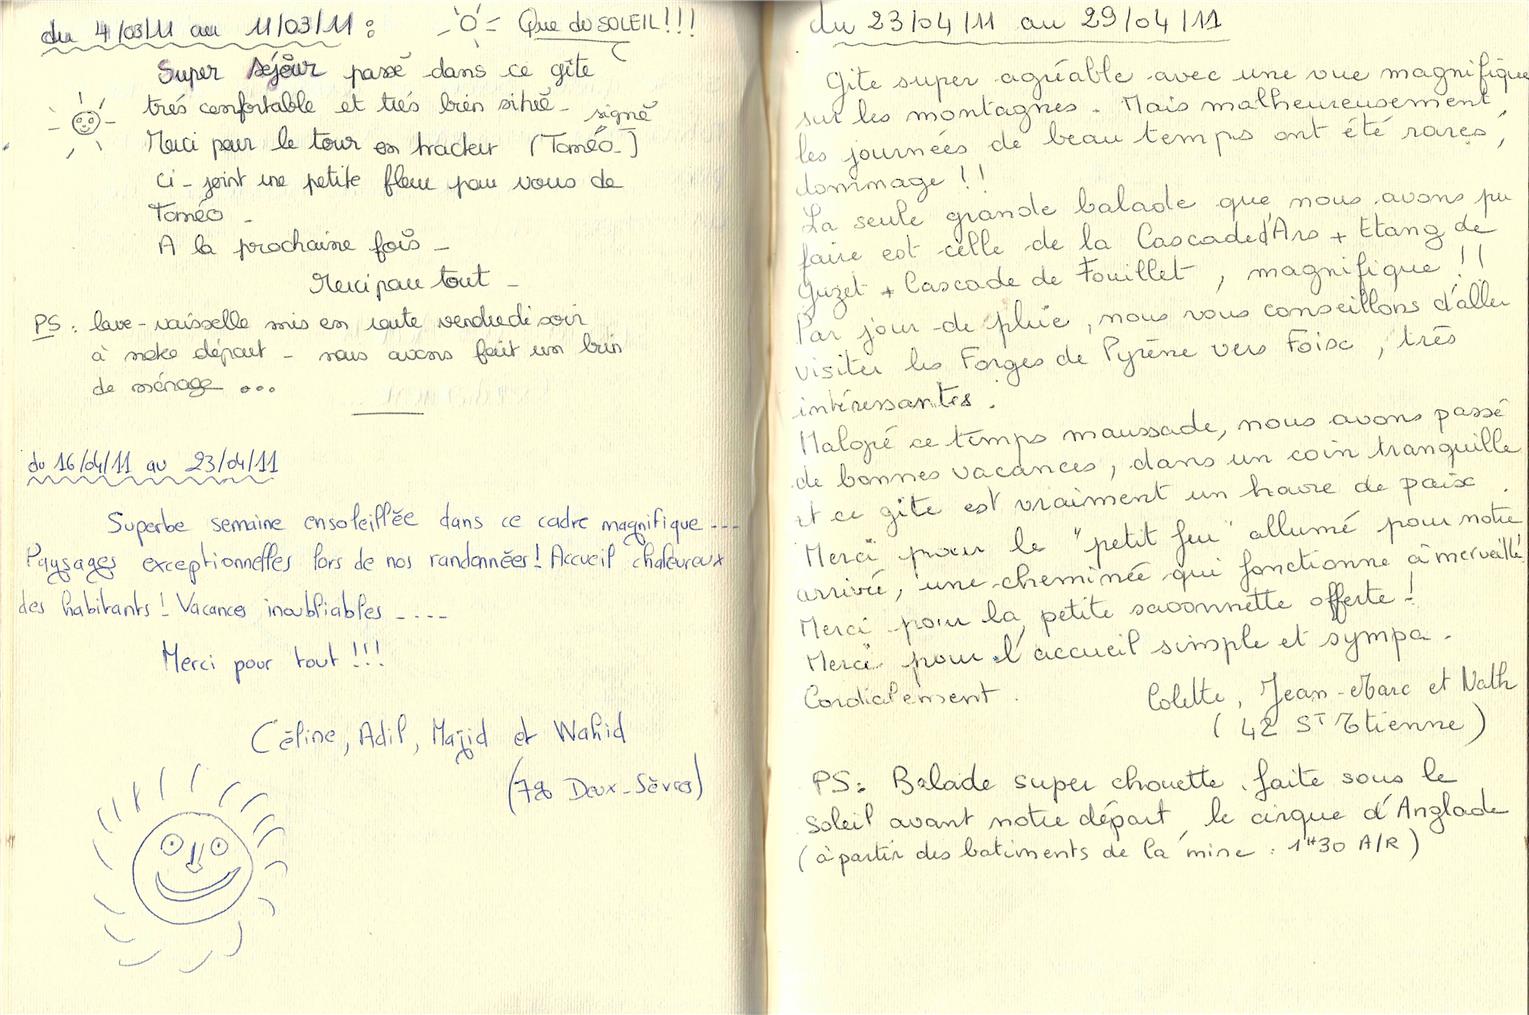 du 4/03/11 au 11/03/11 : Que du SOLEIL !!!
Super séjour passé dans ce gîte
très confortable et très bien situé -
Merci pour le tour en tracteur (signé Toméo -)
Ci-joint une petite fleur pour vous de
Toméo -
A la prochaine fois -
Merci pour tout -
PS : lave-vaisselle mis en route vendredi soir
à notre départ - nous avons fait un brin
de ménage ...
du 16/04/11 au 23/04/11
Superbe semaine ensoleillée dans ce cadre magnifique ---
Paysages exceptionnelles lors de nos randonnées ! Accueil chaleureux
des habitants ! Vacances inoubliables ----
Merci pour tout !!!
Céline, Adil, Majid et Wahid
(79 Deux-Sèvres)
du 23/04/11 au 29/04/11
Gite super agréable avec une vue magnifique
sur les montagnes. Mais malheureusement,
les journées de beau temps ont été rares,
dommage !!
La seule grande balade que nous avons pu
faire est celle de la Cascade d'Ars + Etang de
Guzet + Cascade de Fouillet, magnifique !!
Par jour de pluie, nous vous conseillons d'aller
visiter les Forges de Pyrène vers Foix, très
intéressantes.
Malgré ce temps maussade, nous avons passé
de bonnes vacances, dans un coin tranquille
et ce gîte est vraiment un havre de paix.
Merci pour le "petit feu" allumé pour notre
arrivée, une cheminée qui fonctionne à merveille !
Merci pour la petite savonnette offerte !
Merci pour l'accueil simple et sympa.
Cordialement.
Colette, Jean-Marc et Nath
(42 ST Etienne)
PS : Balade super chouette faite sous le
soleil avant notre départ, le cirque d'Anglade
(à partir des batiments de la mine : 1H30 A/R)